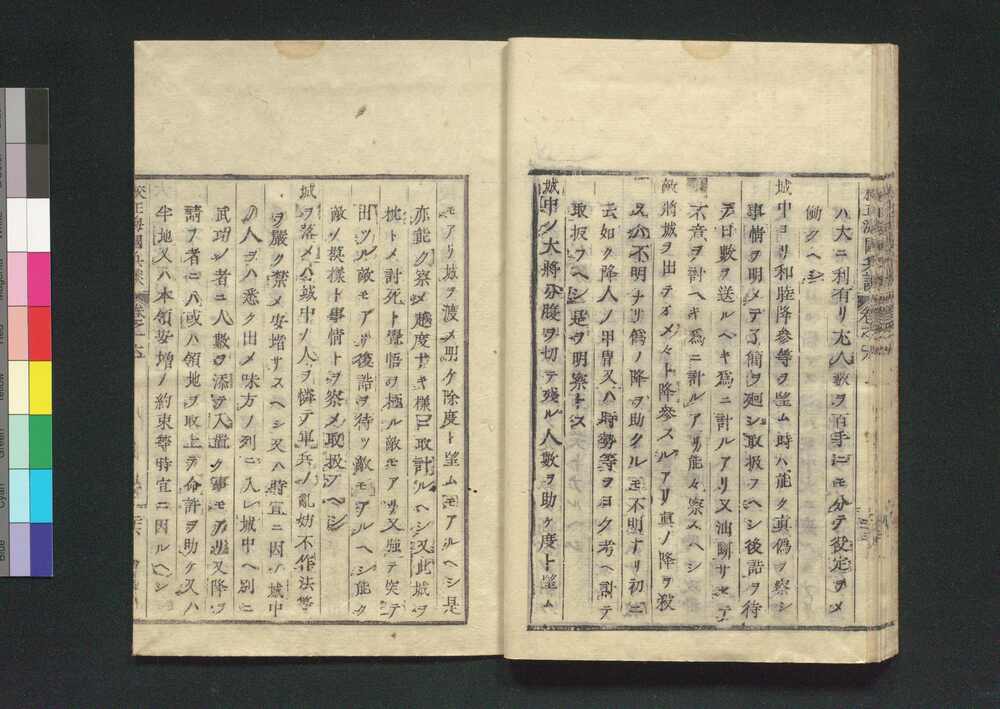 ハ大ニ利有リ尤人数ヲ百手ニモ分テ役定ヲメ
働クヘシ
城中ヨリ和睦降参等ヲ望ム時ハ能ク真偽ヲ察シ
事情ヲ明メテ了簡ヲ廻シ取扱フヘシ後詰ヲ待
テ日数ヲ送ルヘキ為ニ計ルアリ又油断サセテ
不意ヲ討ヘキ為ニ計ルアリ能々察スヘシ
敵将城ヲ出テオメ々ト降参スルアリ真ノ降ヲ殺
スハ不明ナリ偽ノ降ヲ助クルモ不明ナリ初ニ
云如ク降人ノ甲冑又ハ時勢等ヲヨク考ヘ計テ
取扱フヘシ是ヲ明察トス
城中ノ大将分腹ヲ切テ残ル人数ヲ助ケ度ト望ム
モアリ城ヲ渡メ明ケ除度ト望ムモアルヘシ是
亦能ク察メ越度ナキ様ニ取計ルヘシ又此城ヲ
枕トメ討死ト覚悟ヲ極ル敵モアリ又強テ突テ
田ツル敵モアリ後詰ヲ待ツ敵モアルヘシ能ク
敵ノ模様ト事情トヲ察メ取扱フヘシ
城ヲ落メハ城中ノ人ヲ憐テ軍兵ノ乱妨不作法等
ヲ厳ク禁メ安堵サスヘシ又ハ時宜ニ因ル城中
ノ人ヲハ悉ク出メ味方ノ列ニ入レ城中ヘ別ニ
武功ノ者ニ人数ヲ添テ入置ク事モアリ又降ヲ
請フ者ニハ或ハ領地ヲ取上テ命許ヲ助ケ又ハ
半地又ハ本領安堵ノ約束等時宜ニ因ルヘシ
校正海国兵談